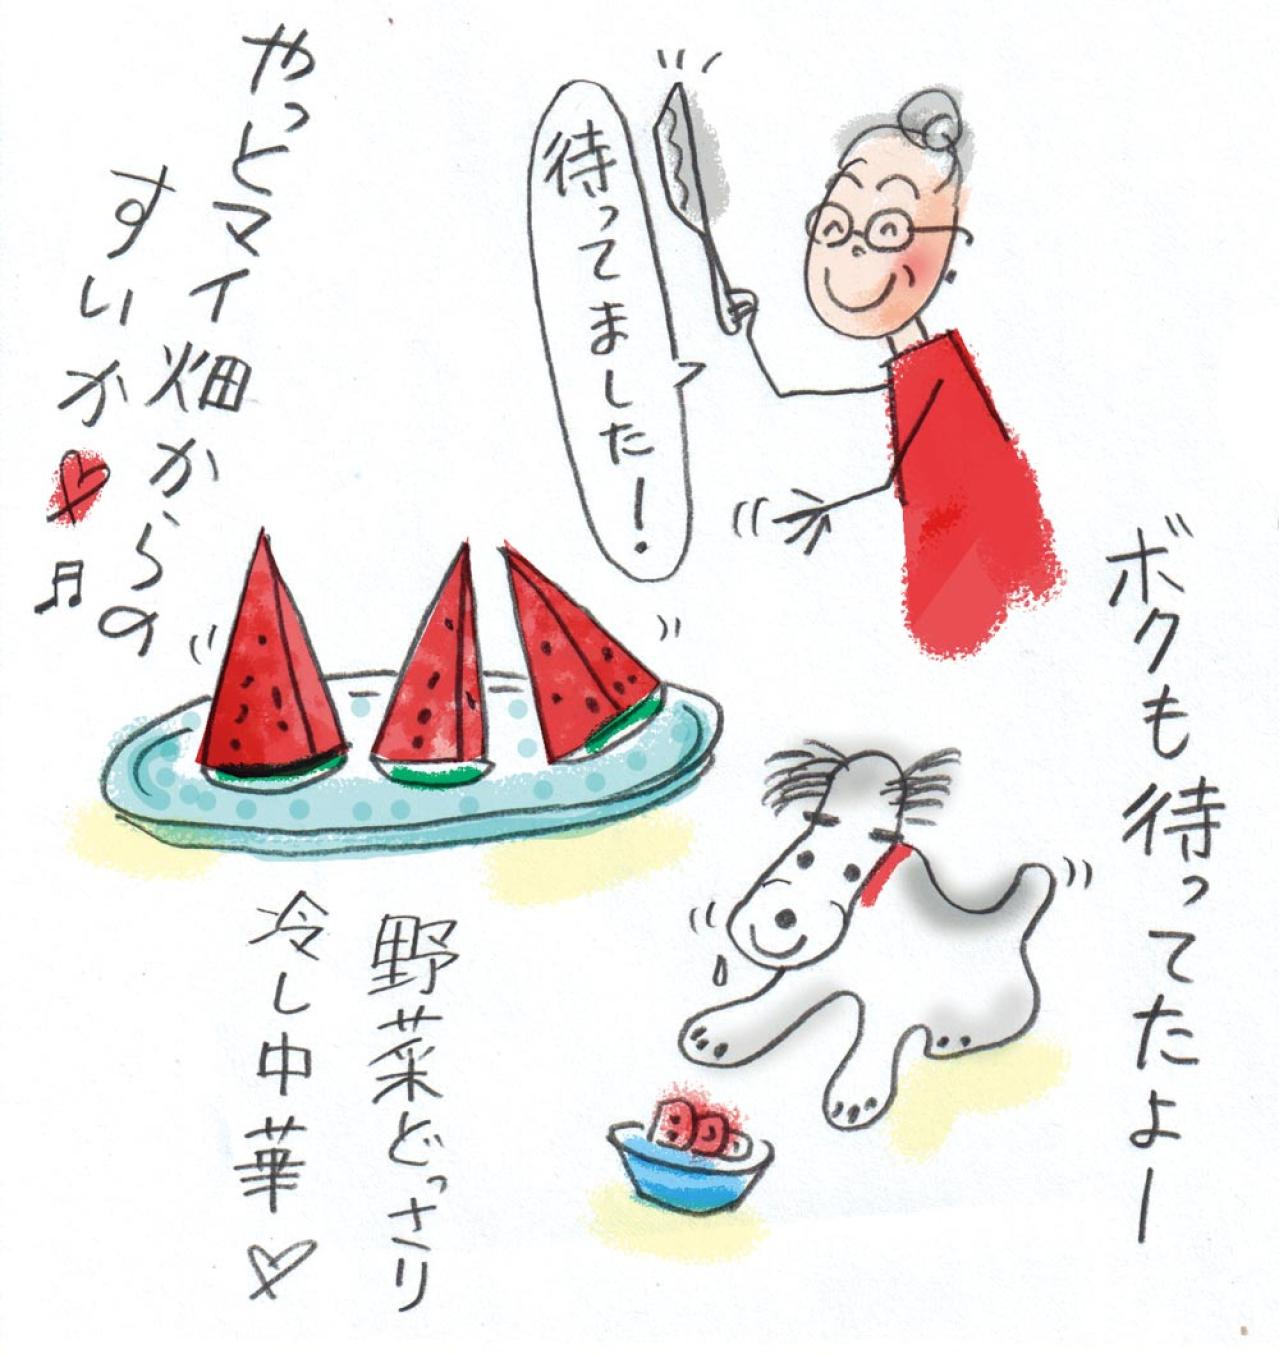 やっとマイ畑からの
すいか
待ってました!
ボクも待ってたよー
野菜どっさり
冷し中華